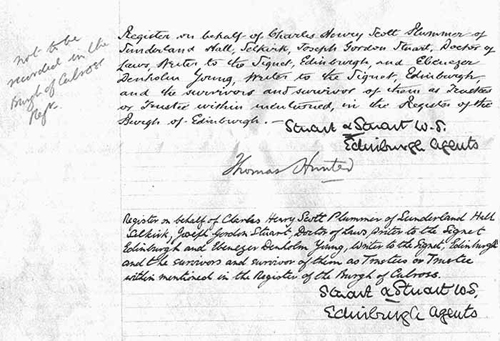 not to be
recorded in the
Burgh of Culross
Regr.
Register on behalf of Charles Henry Scott Plummer of
Sunderland Hall, Selkirk, Joseph Gordon Stuart, Doctor of
Laws, Writer to the Signet, Edinburgh, and Ebenezer
Denholm Young, Writer to the Signet, Edinburgh,
and the survivors and survivor of them as Trustees
or Trustee within mentioned, in the Register of the
Burgh of Edinburgh. —
Stuart & Stuart W.S.
Edinburgh Agents
Thomas Hunter
Register on behalf of Charles Henry Scott Plummer of Sunderland Hall
Selkirk, Joseph Gordon Stuart, Doctor of Laws, Writer to the Signet
Edinburgh and Ebenezer Denholm Young, Writer to the Signet, Edinburgh
and the survivors and survivor of them as Trustees or Trustee
within mentioned in the Register of the Burgh of Culross.
Stuart & Stuart W.S.
Edinburgh Agents